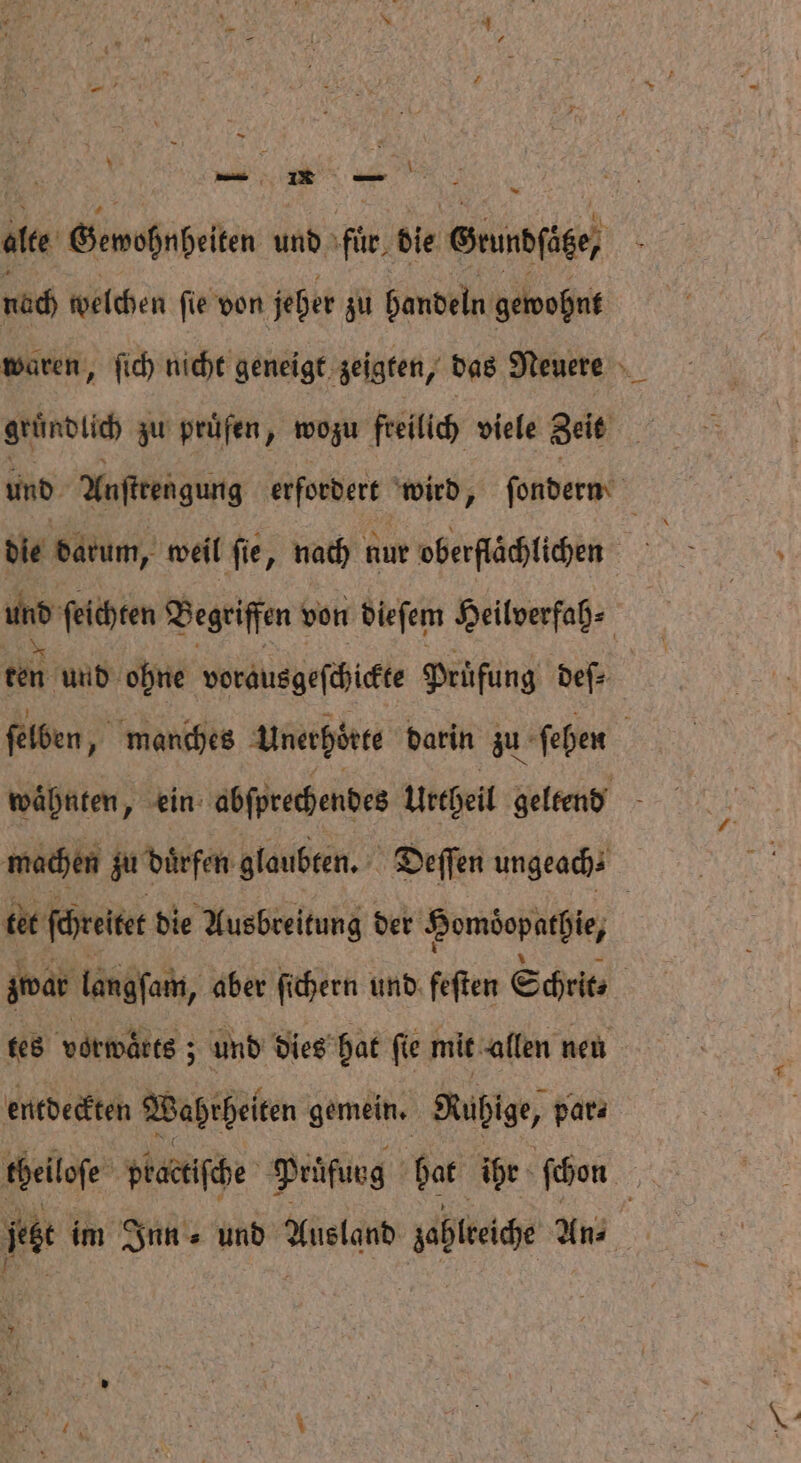 — IX —
alte Gewohnheiten und fuͤr die Grundſaͤtze,
nach welchen ſie von jeher zu handeln gewohnt
waren, ſich nicht geneigt zeigten, das Neuere
gruͤndlich zu pruͤfen, wozu freilich viele Zeit
und Anſtrengung erfordert wird, ſondern
die darum, weil ſie, nach nur oberflaͤchlichen
und ſeichten Begriffen von dieſem Heilverfah-
ren und ohne vorausgeſchickte Pruͤfung deſ-
ſelben, manches Unerhoͤrte darin zu ſehen
waͤhnten, ein abſprechendes Urtheil geltend
machen zu duͤrfen glaubten. Deſſen ungeach-
tet ſchreitet die Ausbreitung der Homoͤopathie,
zwar langſam, aber ſichern und feſten Schrit-
tes vorwaͤrts; und dies hat ſie mit allen neu
entdeckten Wahrheiten gemein. Ruhige, par-
theiloſe practiſche Pruͤfung hat ihr ſchon
jetzt im Inn- und Ausland zahlreiche An-